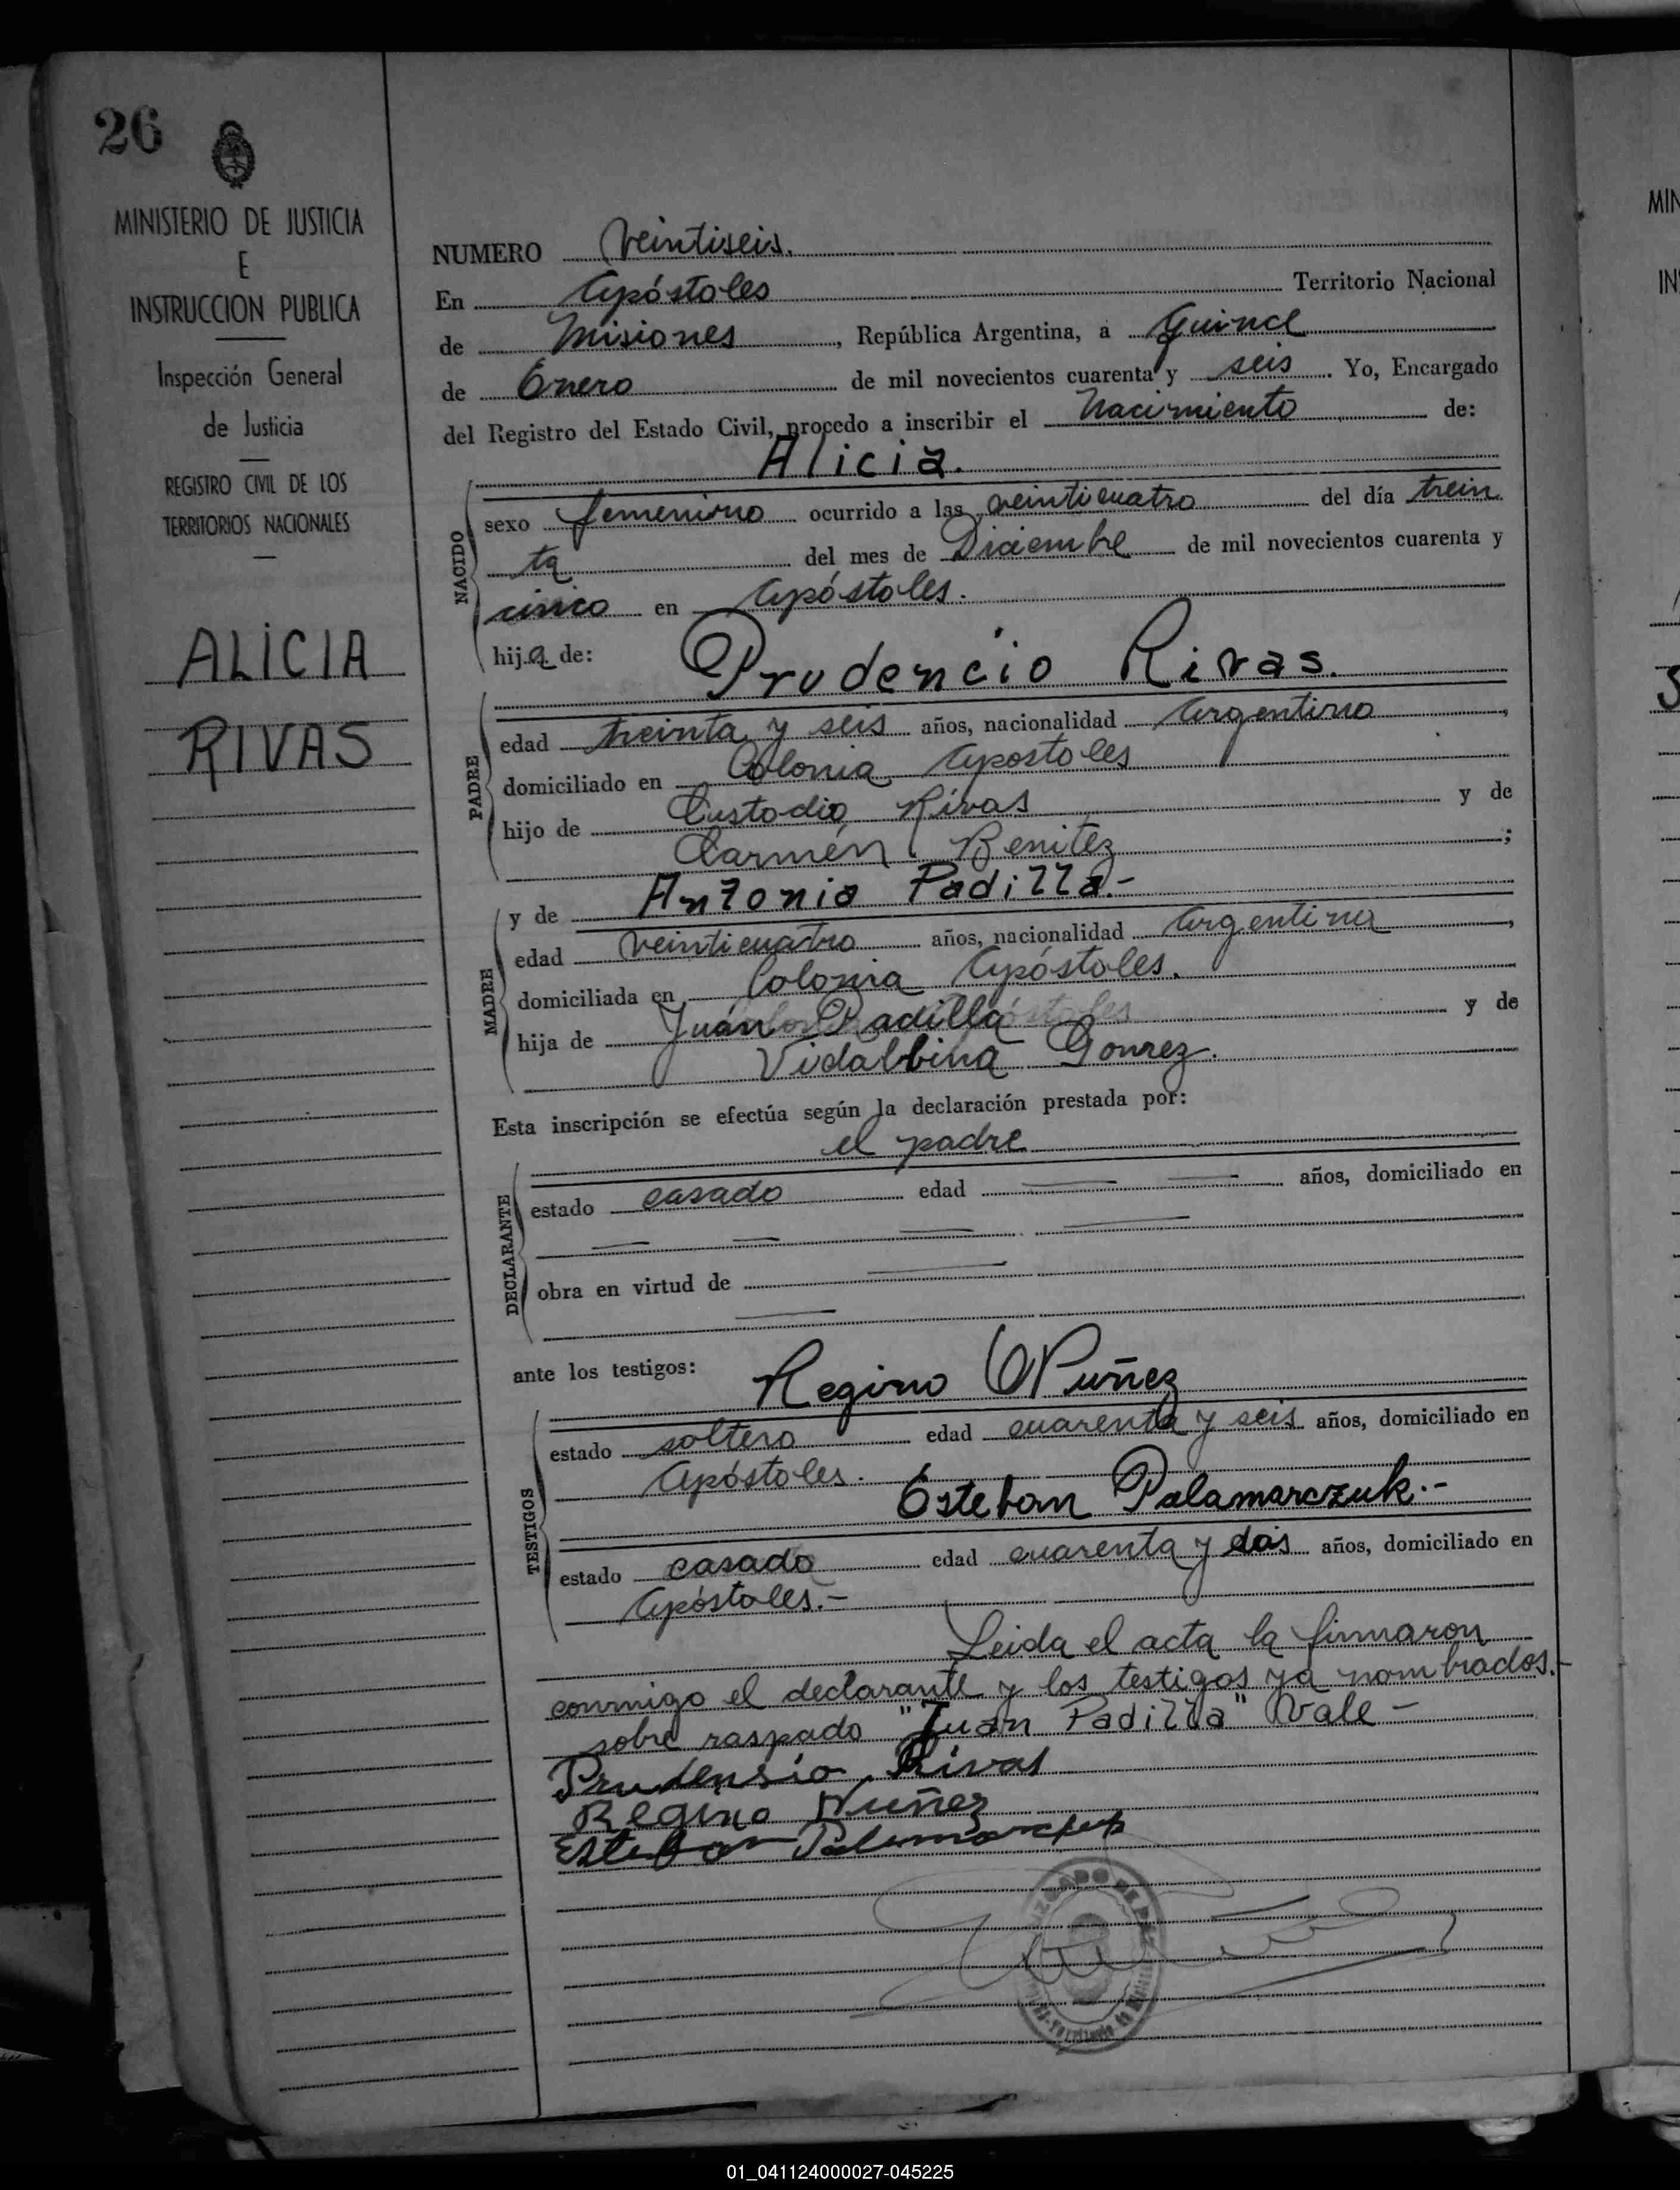 26
MINISTERIO DE JUSTICIA
E
INSTRUCCION PUBLICA
Inspección General
de Justicia
REGISTRO CIVIL DE LOS
TERRITORIOS NACIONALES
ALICIA
RIVAS
NUMERO Veintiseis.
En Apóstoles Territorio Nacional
de Misiones, República Argentina, a Quince
de Enero de mil novecientos cuarenta y seis. Yo, Encargado
del Registro del Estado Civil, procedo a inscribir el Nacimiento de:
Alicia.
NACIDO
sexo femenino ocurrido a las veinticuatro del día trein
ta del mes de Diciembre de mil novecientos cuarenta y
cinco en Apóstoles.
hija de: Prudencio Rivas.
PADRE
edad treinta y seis años, nacionalidad Argentino,
domiciliado en Colonia Apostoles
hijo de Custodio Rivas y de
Carmén Benitez;
y de Antonia Padilla.-
MADRE
edad veinticuatro años, nacionalidad Argentina,
domiciliada en Colonia Apóstoles.
hija de Juan Padilla y de
Vidalbina Gomez.
Esta inscripción se efectúa según la declaración prestada por:
el padre
DECLARANTE
estado casado edad años, domiciliado en
obra en virtud de
ante los testigos: Regino Nuñez
TESTIGOS
estado soltero edad cuarenta y seis años, domiciliado en
Apóstoles.
Esteban Palamarczuk.-
estado casado edad cuarenta y dos años, domiciliado en
Apóstoles.-
Leida el acta la firmaron
conmigo el declarante y los testigos ya nombrados.-
sobre raspado "Juan Padilla" Vale-
Prudensio Rivas
Regino Nuñez
Esteban Palamarczuk
01_041124000027-045225